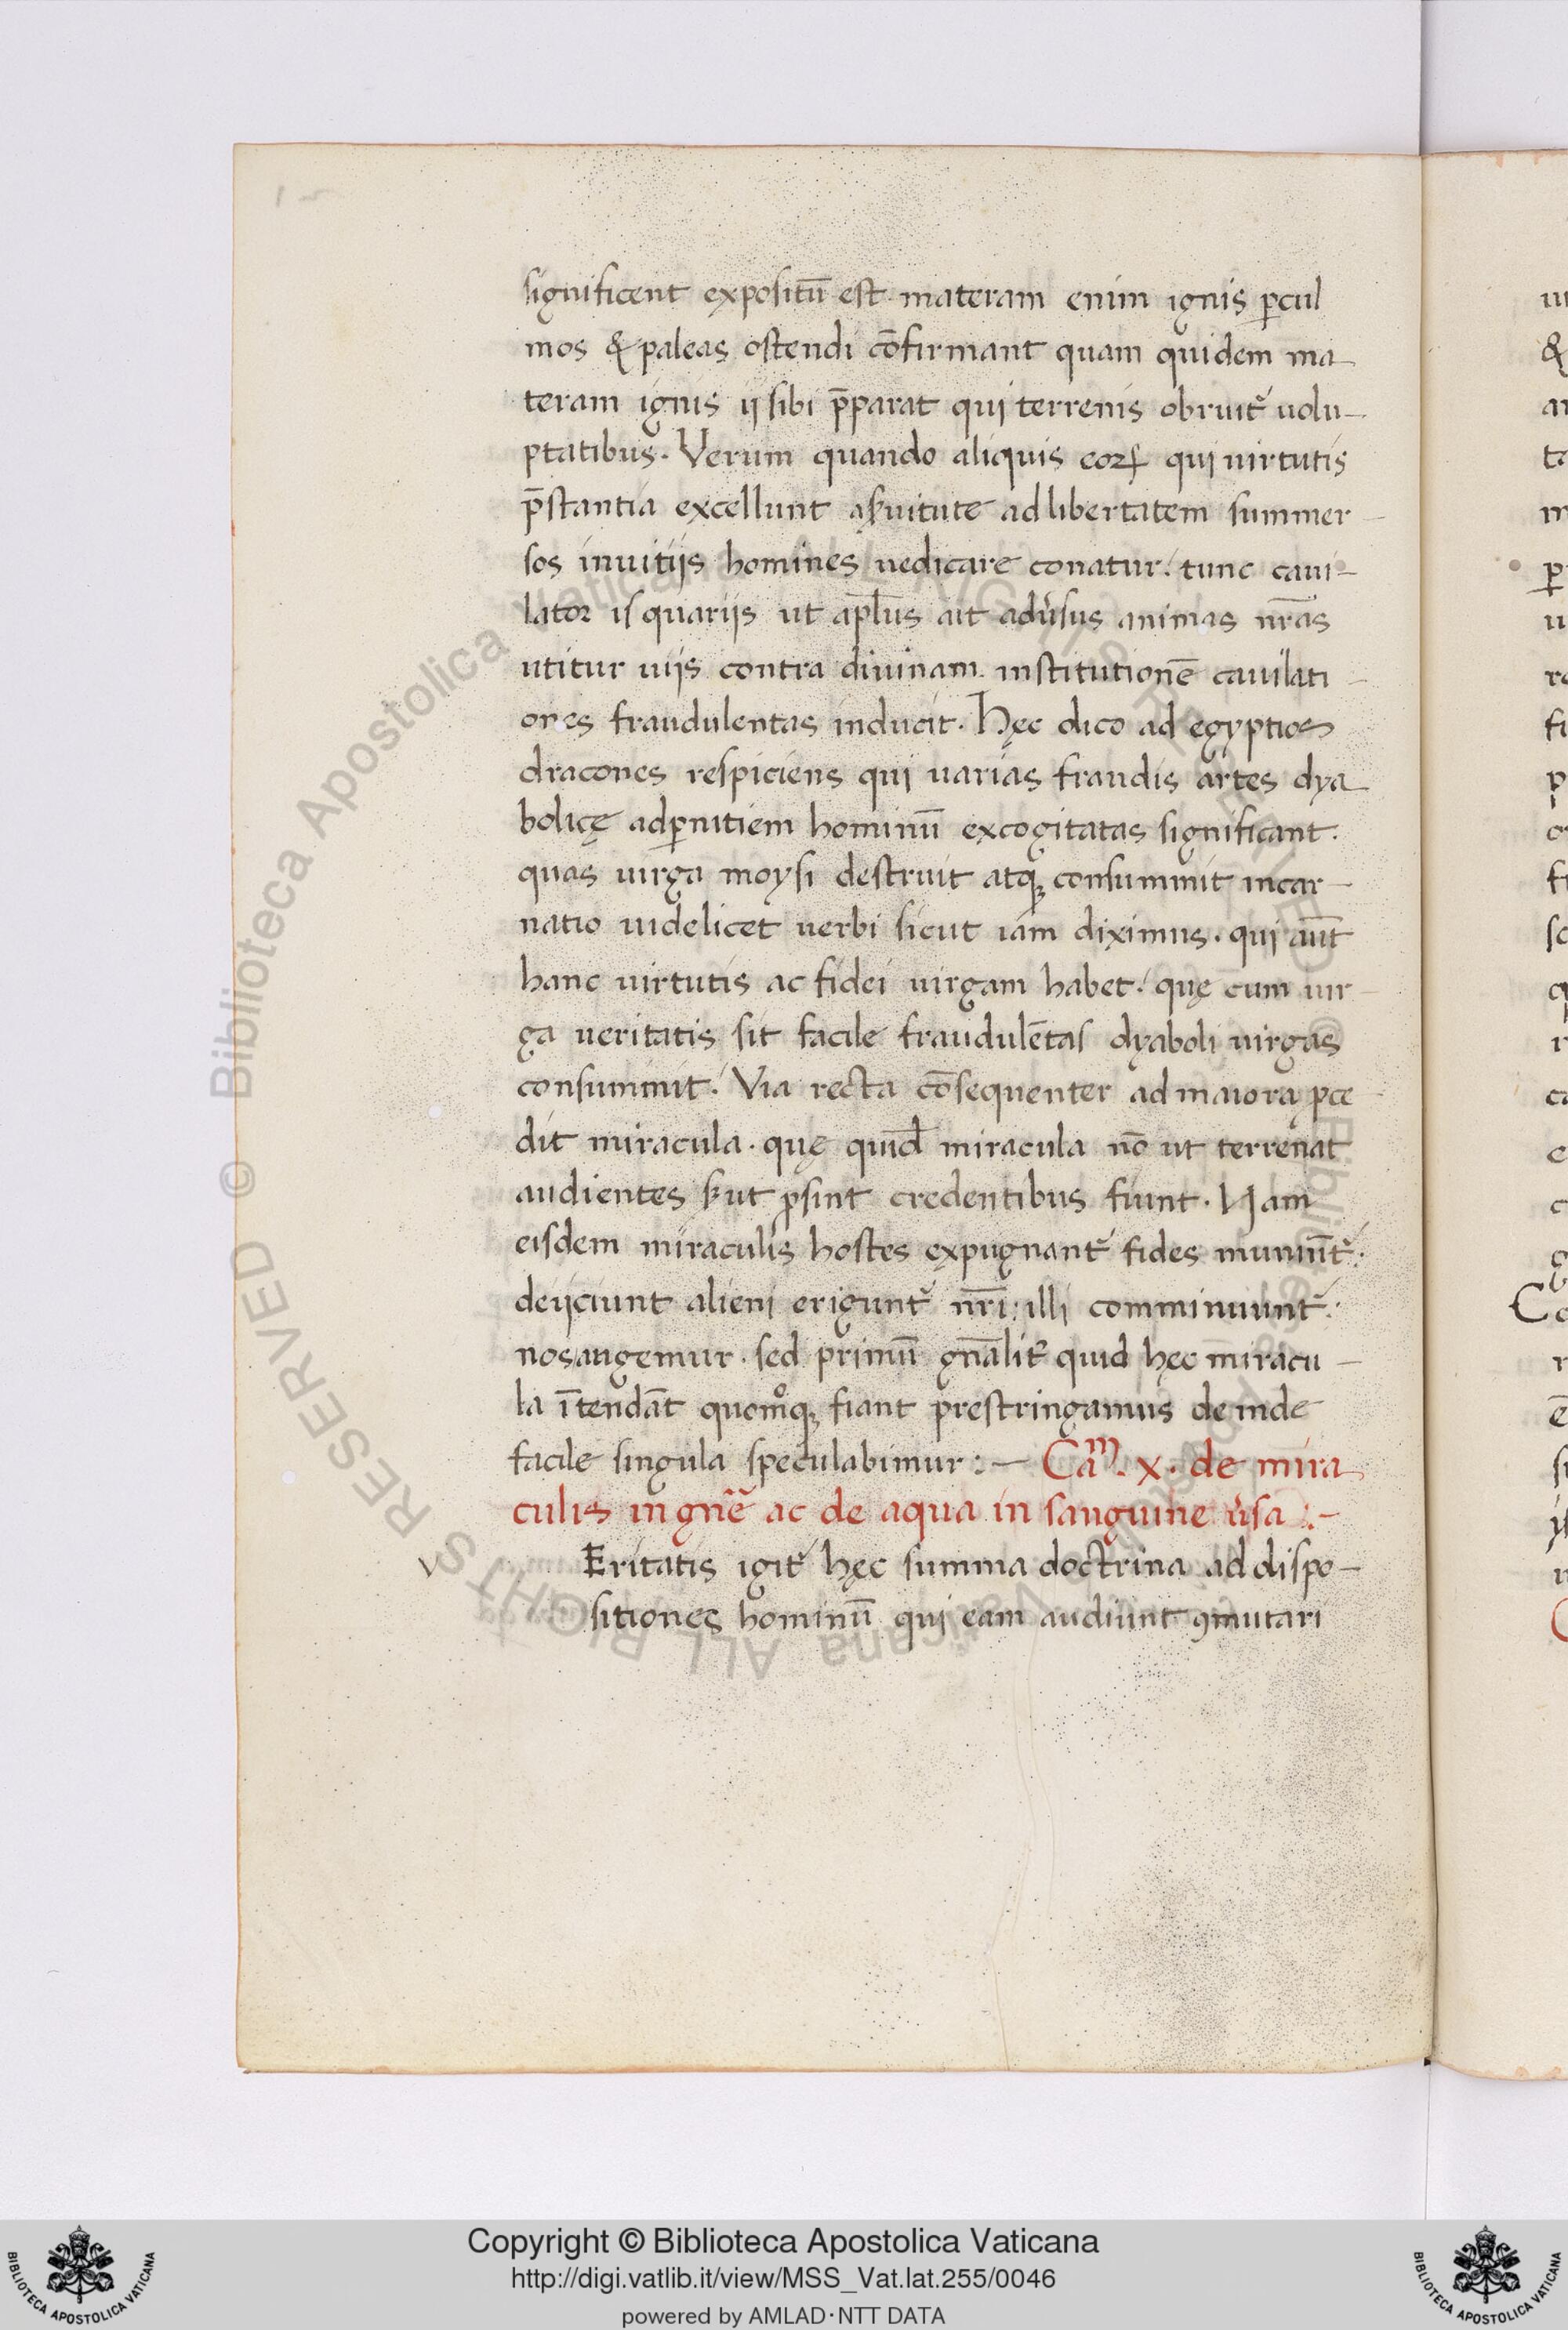 significent expositū est. materam enim ignis ꝑcul
mos & paleas ostendi cōfirmant quam quidem ma-
teram ignis ij sibi p̄parat qui terrenis obruit᷑ uolu-
ptatibus. Verum quando aliquis eoꝝ qui uirtutis
p̄stantia excellunt aẜuitute ad libertatem summer-
sos inuitijs homines uedicare conatur. tunc caui-
lator is quarijs ut apl̄us ait adu̓sus animas nr̄as
utitur uijs contra diuinam institutionē cauilati-
ones fraudulentas inducit. Hęc dico ad egyptios
dracones respiciens qui uarias fraudis artes dya-
bolicę adꝑnitiem hominū excogitatas significant.
quas uirga moysi destruit atqꝫ consummit incar-
natio uidelicet uerbi sicut iam diximus. qui aūt
hanc uirtutis ac fidei uirgam habet. quę cum uir-
ga ueritatis sit facile fraudulētas dyaboli uirgas
consummit. Via recta cōsequenter ad maiora ꝓce-
dit miracula. quę quid̄ miracula nō ut terrenat
audientes ẜ ut ꝓsint credentibus fiunt. Nam
eisdem miraculis hostes expugnant᷑ fides muniūt᷑.
deijciunt alieni erigunt᷑ nr̄i: illi comminuunt᷑.
nos augemur. sed primū gn̄alit᷑ quid hęc miracu-
la ītendāt quomo̊qꝫ fiant prestringamus deinde
facile singula speculabimur :- Caᵐ. x. de mira-
culis in gn̄ē ac de aqua in sanguine u̓sa :-
v Eritatis igit᷑ hęc summa doctrina ad dispo-
sitiones hominū qui eam audiunt ꝯmutari
Copyright © Biblioteca Apostolica Vaticana
http://digi.vatlib.it/view/MSS_Vat.lat.255/0046
powered by AMLAD·NTT DATA
BIBLIOTECA APOSTOLICA VATICANA
BIBLIOTECA APOSTOLICA VATICANA
© Biblioteca Apostolica Vaticana ALL RIGHTS RESERVED